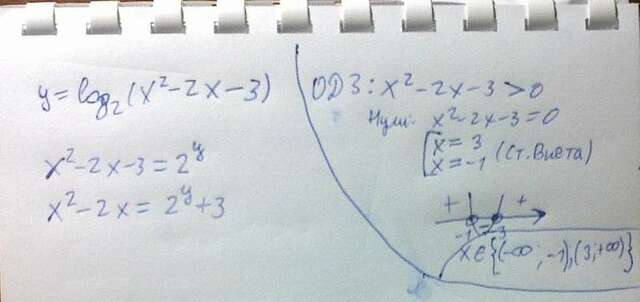 y = log₂(x² - 2x - 3)
x² - 2x - 3 = 2^y
x² - 2x = 2^y + 3
ОДЗ: x² - 2x - 3 > 0
Нули: x² - 2x - 3 = 0
[x = 3
x = -1 (Ст. Виета)
+ - +
-1 3
x ∈ {(-∞; -1), (3; +∞)}